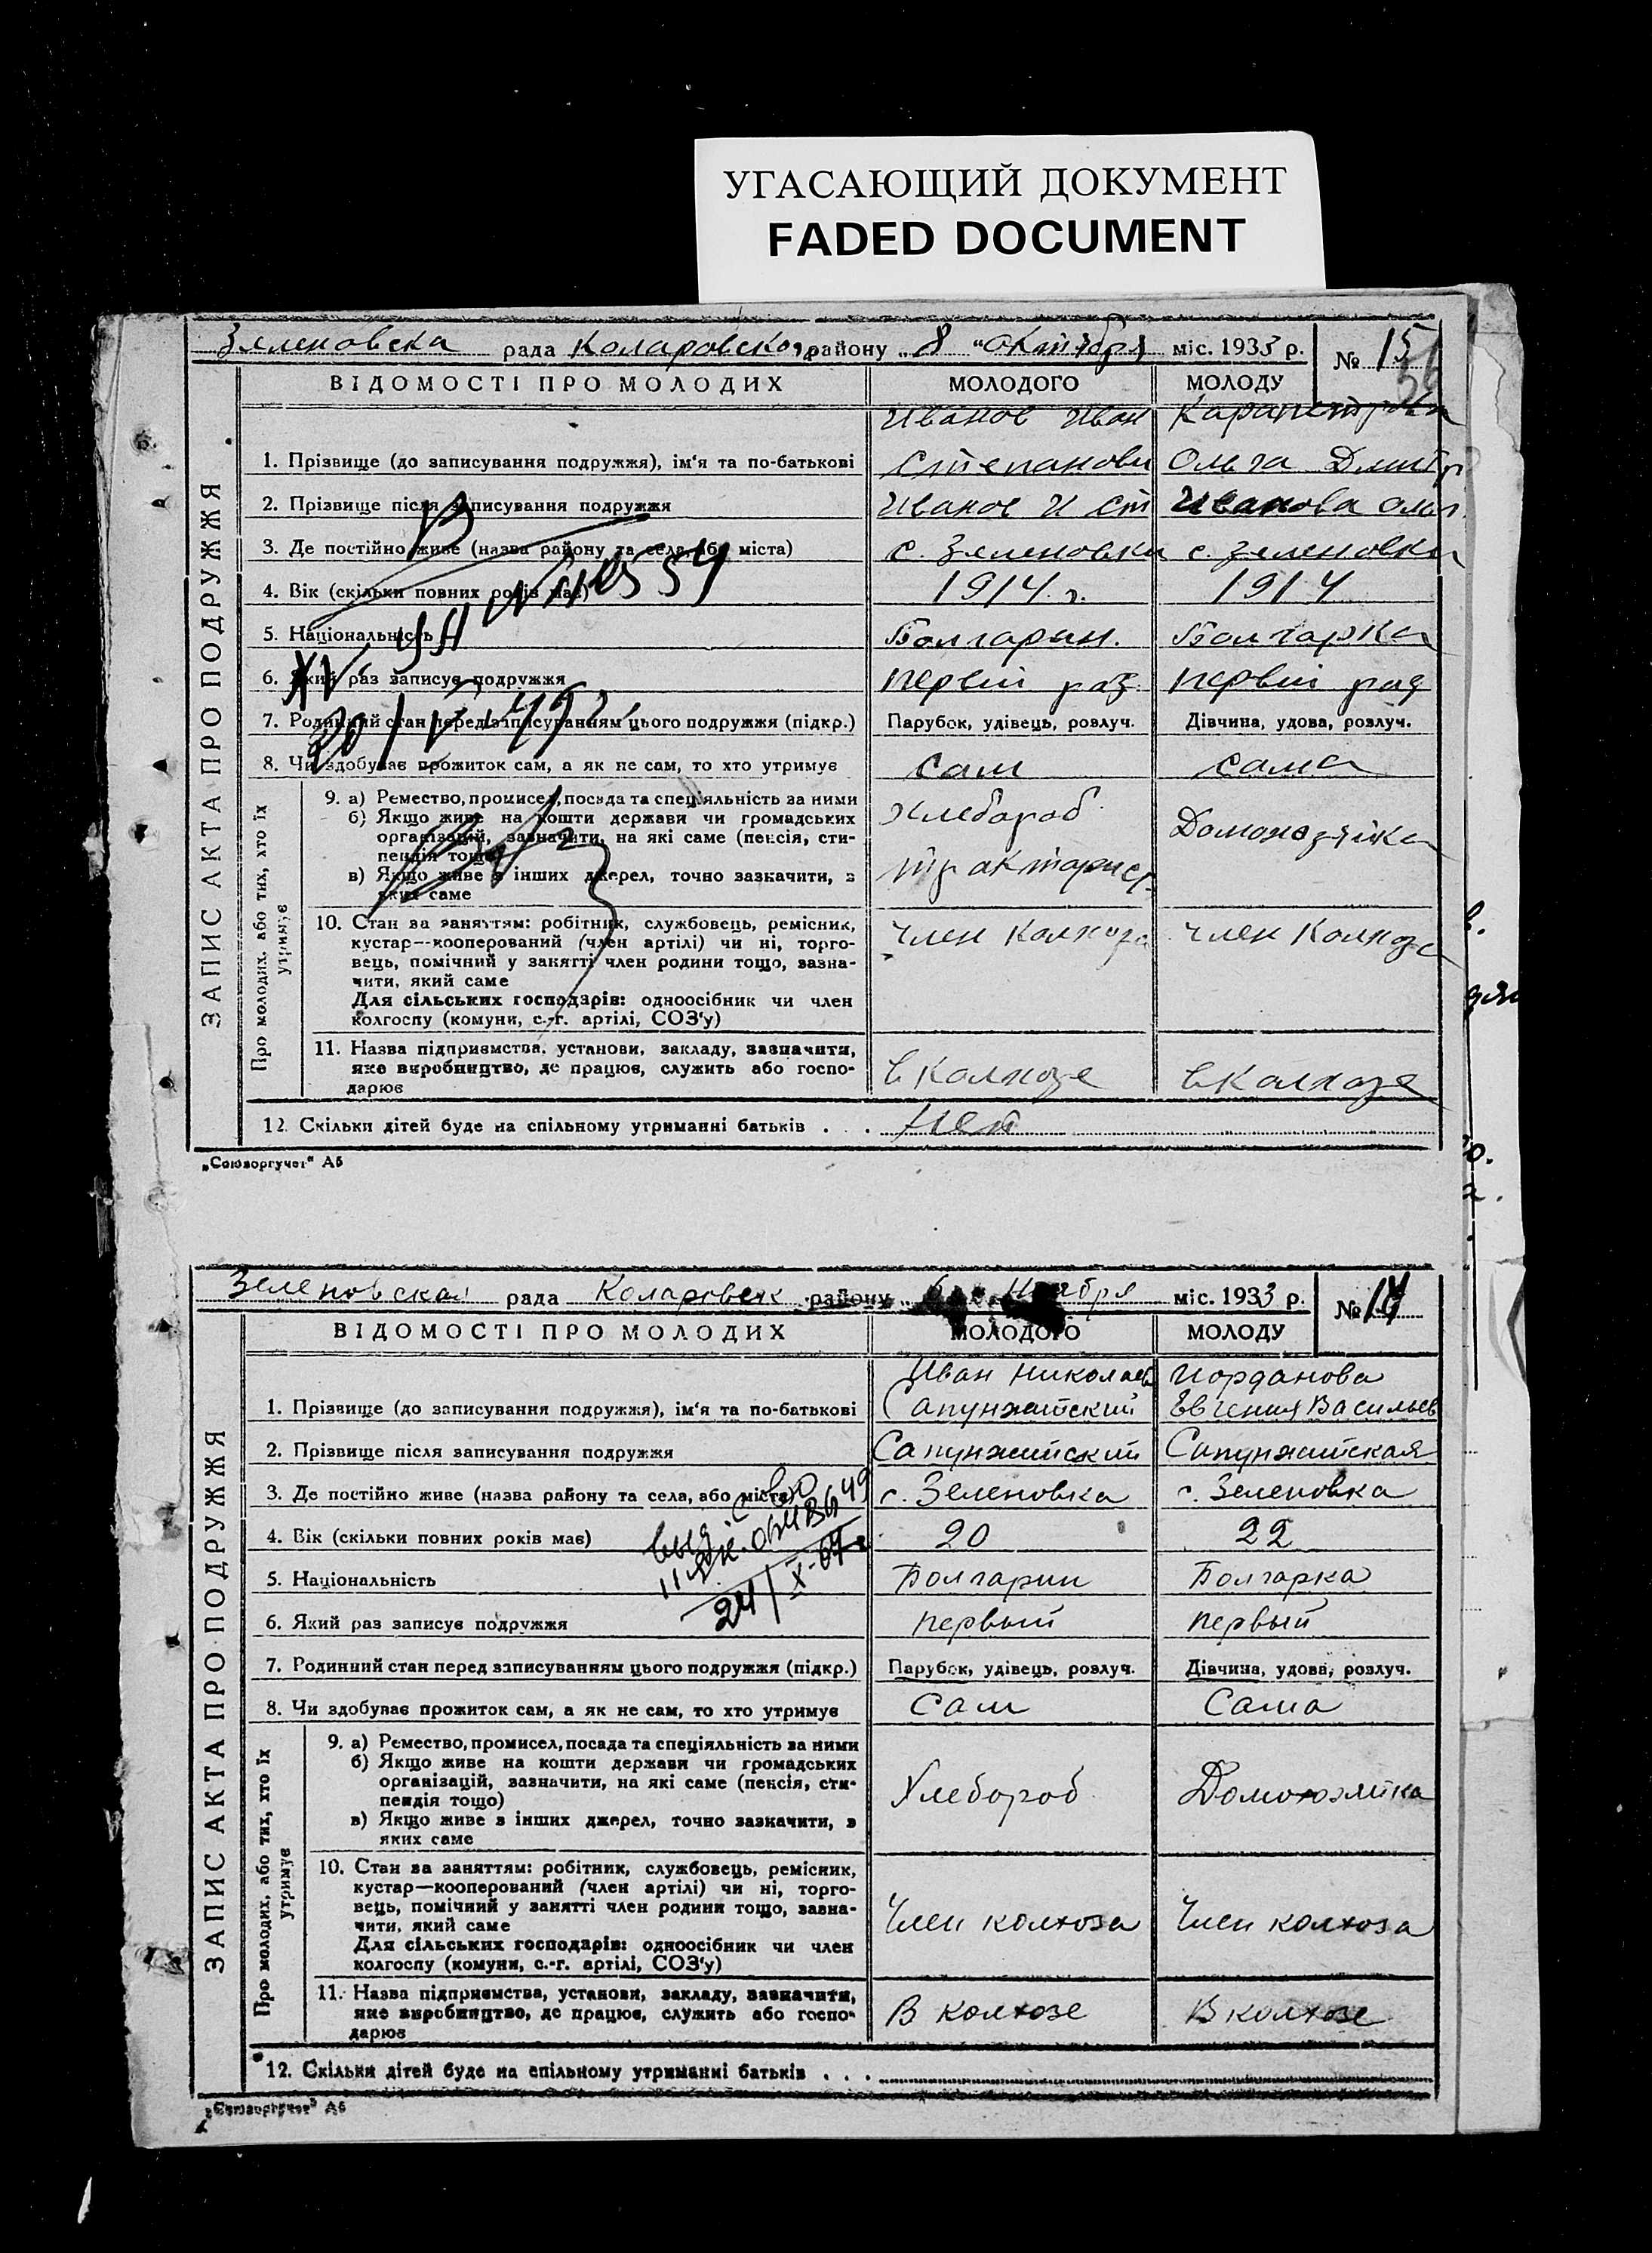 УГАСАЮЩИЙ ДОКУМЕНТ
FADED DOCUMENT
Зеленовска рада Коларовского району „ 8 “ Октября міс. 1933 р. № 15
ВІДОМОСТІ ПРО МОЛОДИХ МОЛОДОГО МОЛОДУ
ЗАПИС АКТА ПРО ПОДРУЖЖЯ
Иванов Иван
1. Прізвище (до записування подружжя), ім'я та по-батькові Степанови Ольга Дмитр
2. Прізвище після записування подружжя Иванов И Ст Иванова Ольг
3. Де постійно живе (назва району та села, або міста) с. Зеленовки с. Зеленовки
4. Вік (скільки повних років має) 1914 г. 1914
5. Національність Болгарин. Болгарка
6. Який раз записує подружжя первій раз первій раз
7. Родинний стан перед записуванням цього подружжя (підкр.) Парубок, удівець, розлуч. Дівчина, удова, розлуч.
8. Чи здобуває прожиток сам, а як не сам, то хто утримує сам сама
Про молодих, або тих, хто їх утримує
9. а) Ремество, промисел, посада та спеціяльність за ними Хлебороб
б) Якщо живе на кошти держави чи громадських
організацій, зазначити, на які саме (пенсія, сти- Домохозяйка
пендія тощо)
в) Якщо живе з інших джерел, точно зазначити, з тракторист
яких саме
10. Стан за заняттям: робітник, службовець, ремісник,
кустар--кооперований (член артілі) чи ні, торго- член Колхоза член Колхоза
вець, помічний у занятті член родини тощо, зазна-
чити, який саме
Для сільських господарів: одноосібник чи член
колгоспу (комуни, с.-г. артілі, СОЗ'у)
11. Назва підприємства, установи, закладу, зазначити,
яке виробництво, де працює, служить або госпо- в Колхозе в Колхозе
дарює
12. Скільки дітей буде на спільному утриманні батьків . . . Нет
„Союзоргучет“ А5
Зеленовская рада Коларовск району 6 Ноября міс. 1933 р. № 14
ВІДОМОСТІ ПРО МОЛОДИХ МОЛОДОГО МОЛОДУ
ЗАПИС АКТА ПРО ПОДРУЖЖЯ
Иван Николаев Иорданова
1. Прізвище (до записування подружжя), ім'я та по-батькові Сапунжийский Евгения Васильев
2. Прізвище після записування подружжя Сапунжийский Сапунжийская
3. Де постійно живе (назва району та села, або міста) с. Зеленовка с. Зеленовка
4. Вік (скільки повних років має) 20 22
5. Національність Болгарин Болгарка
6. Який раз записує подружжя первый первый
7. Родинний стан перед записуванням цього подружжя (підкр.) Парубок, удівець, розлуч. Дівчина, удова, розлуч.
8. Чи здобуває прожиток сам, а як не сам, то хто утримує Сам Сама
Про молодих, або тих, хто їх утримує
9. а) Ремество, промисел, посада та спеціяльність за ними
б) Якщо живе на кошти держави чи громадських
організацій, зазначити, на які саме (пенсія, сти- Хлебороб Домохозяйка
пендія тощо)
в) Якщо живе з інших джерел, точно зазначити, з
яких саме
10. Стан за заняттям: робітник, службовець, ремісник,
кустар—кооперований (член артілі) чи ні, торго-
вець, помічний у занятті член родини тощо, зазна- Член колхоза Член колхоза
чити, який саме
Для сільських господарів: одноосібник чи член
колгоспу (комуни, с.-г. артілі, СОЗ'у)
11. Назва підприємства, установи, закладу, зазначити,
яке виробництво, де працює, служить або госпо- В колхозе В колхозе
дарює
12. Скільки дітей буде на спільному утриманні батьків . . .
„Союзоргучет“ А5